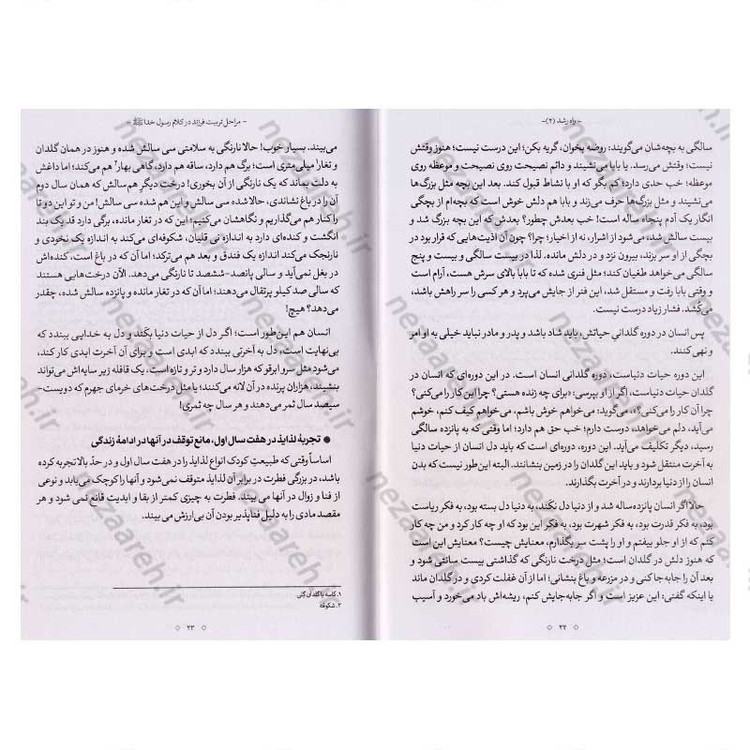 - راه رشد (۲) -
سالگی به بچه‌شان می‌گویند: روضه بخوان، گریه بکن؛ این درست نیست؛ هنوز وقتش
نیست؛ وقتش می‌رسد. یا بابا می‌نشیند و دائم نصیحت روی نصیحت و موعظه روی
موعظه؛ خب حدی دارد؛ کم بگو که او با نشاط قبول کند. بعد این بچه مثل بزرگ‌ها
می‌نشیند و مثل بزرگ‌ها حرف می‌زند و بابا هم دلش خوش است که بچه‌ام از بچگی
انگار یک آدم پنجاه ساله است! خب بعدش چطور؟ بعدش که این بچه بزرگ شد و
بیست سالش شد، می‌شود از اشرار، نه از اخیار؛ چرا؟ چون آن اذیت‌هایی که قرار بود در
بچگی از او سر بزند، بیرون نزد و در دلش مانده. لذا در بیست سالگی و بیست و پنج
سالگی می‌خواهد طغیان کند؛ مثل فنری شده که تا بابا بالای سرش هست، آرام است
و وقتی بابا رفت و مستقل شد، این فنر از جایش می‌پرد و هر کسی را سر راهش باشد،
می‌کشد. فشار زیاد درست نیست.
پس انسان در دوره گلدانی حیاتش، باید شاد باشد و پدر و مادر نباید خیلی به او امر
و نهی کنند.
این دوره حیات دنیاست، دوره گلدانی انسان است. در این دوره‌ای که انسان در
گلدان حیات دنیاست، اگر از او بپرسی: «برای چه زنده هستی؟ چرا این کار را می‌کنی؟
چرا آن کار را می‌کنی؟»، می‌گوید: می‌خواهم خوش باشم، می‌خواهم کیف کنم، خوشم
می‌آید، دلم می‌خواهد، دوست دارم؛ خب حق هم دارد؛ اما وقتی که به پانزده سالگی
رسید، دیگر تکلیف می‌آید. این دوره، دوره‌ای است که باید دل انسان از حیات دنیا
به آخرت منتقل شود و باید این گلدان را در زمین بنشانند. البته این‌طور نیست که بدن
انسان را از دنیا بردارند و در آخرت بگذارند.
حالا اگر انسان پانزده‌ساله شد و از دنیا دل نکند، به دنیا دل بسته بود، به فکر ریاست
بود، به فکر قدرت بود، به فکر شهرت بود، به فکر این بود که او چه کار کرد و من چه کار
کنم که از او جلو بیفتم و او را پشت سر بگذارم، معنایش چیست؟ معنایش این است
که هنوز دلش در گلدان است؛ مثل درخت نارنگی که گذاشتی بیست سانتی شود و
بعد آن را جابه‌جا کنی و در مزرعه و باغ بنشانی؛ اما از آن غفلت کردی و در گلدان ماند
یا اینکه گفتی: این عزیز است و اگر جابه‌جایش کنم، ریشه‌اش باد می‌خورد و آسیب
۲۲
- مراحل تربیت فرزند در کلام رسول خدا ﷺ -
می‌بیند. بسیار خوب! حالا نارنگی به سلامتی سی سالش شده و هنوز در همان گلدان
و تغار۱ میلی‌متری است؛ برگ هم دارد، ساقه هم دارد، گاهی بهار۲ هم می‌کند؛ اما داغش
به دلت بماند که یک نارنگی از آن بخوری! درخت دیگر هم سالش که همان سال دوم
آن را در باغ نشاندی، حالا شده سی سالش و این هم شده سی سالش! من و تو این دو تا
را کنار هم می‌گذاریم و نگاهشان می‌کنیم؛ این که در تغار مانده، برگی دارد قد یک بند
انگشت و کنده‌ای دارد به اندازه نی قلیان، شکوفه‌ای می‌کند به اندازه یک نخودی و
نارنجک می‌کند اندازه یک فندق و بعد هم می‌ترکد؛ اما آن که در باغ است، کنده‌اش
در بغل نمی‌آید و سالی پانصد-ششصد تا نارنگی می‌دهد. الآن درخت‌هایی هستند
که سالی صد کیلو پرتقال می‌دهند؛ اما آن که در تغار مانده و پانزده سالش شده، چقدر
می‌دهد؟ هیچ!
انسان هم این‌طور است؛ اگر دل از حیات دنیا بکند و دل به خدایی ببندد که
بی‌نهایت است، دل به آخرتی ببندد که ابدی است و برای آن آخرت ابدی کار کند،
می‌شود مثل سرو ابرقو که هزار سال دارد و تر و تازه است، یک قافله زیر سایه‌اش می‌تواند
بنشیند، هزاران پرنده در آن لانه می‌کنند؛ یا مثل درخت‌های خرمای جهرم که دویست-
سیصد سال ثمر می‌دهند و هر سال چه ثمری!
● تجربهٔ لذایذ در هفت سال اول، مانع توقف در آنها در ادامهٔ زندگی
اساساً وقتی که طبیعتِ کودک انواع لذایذ را در هفت سال اول و در حدّ بالا تجربه کرده
باشد، در بزرگی فطرت در برابر آن لذایذ متوقف نمی‌شود و آنها را کوچک می‌یابد و نوعی
از فنا و زوال در آنها می بیند. فطرت به چیزی کمتر از بقا و ابدیت قانع نمی شود و هر
مقصد مادی را به دلیل فناپذیر بودن آن بی‌ارزش می بیند.
۱. کاسه یا گلدان گِلی
۲. شکوفه
۲۳
nezaareh.ir